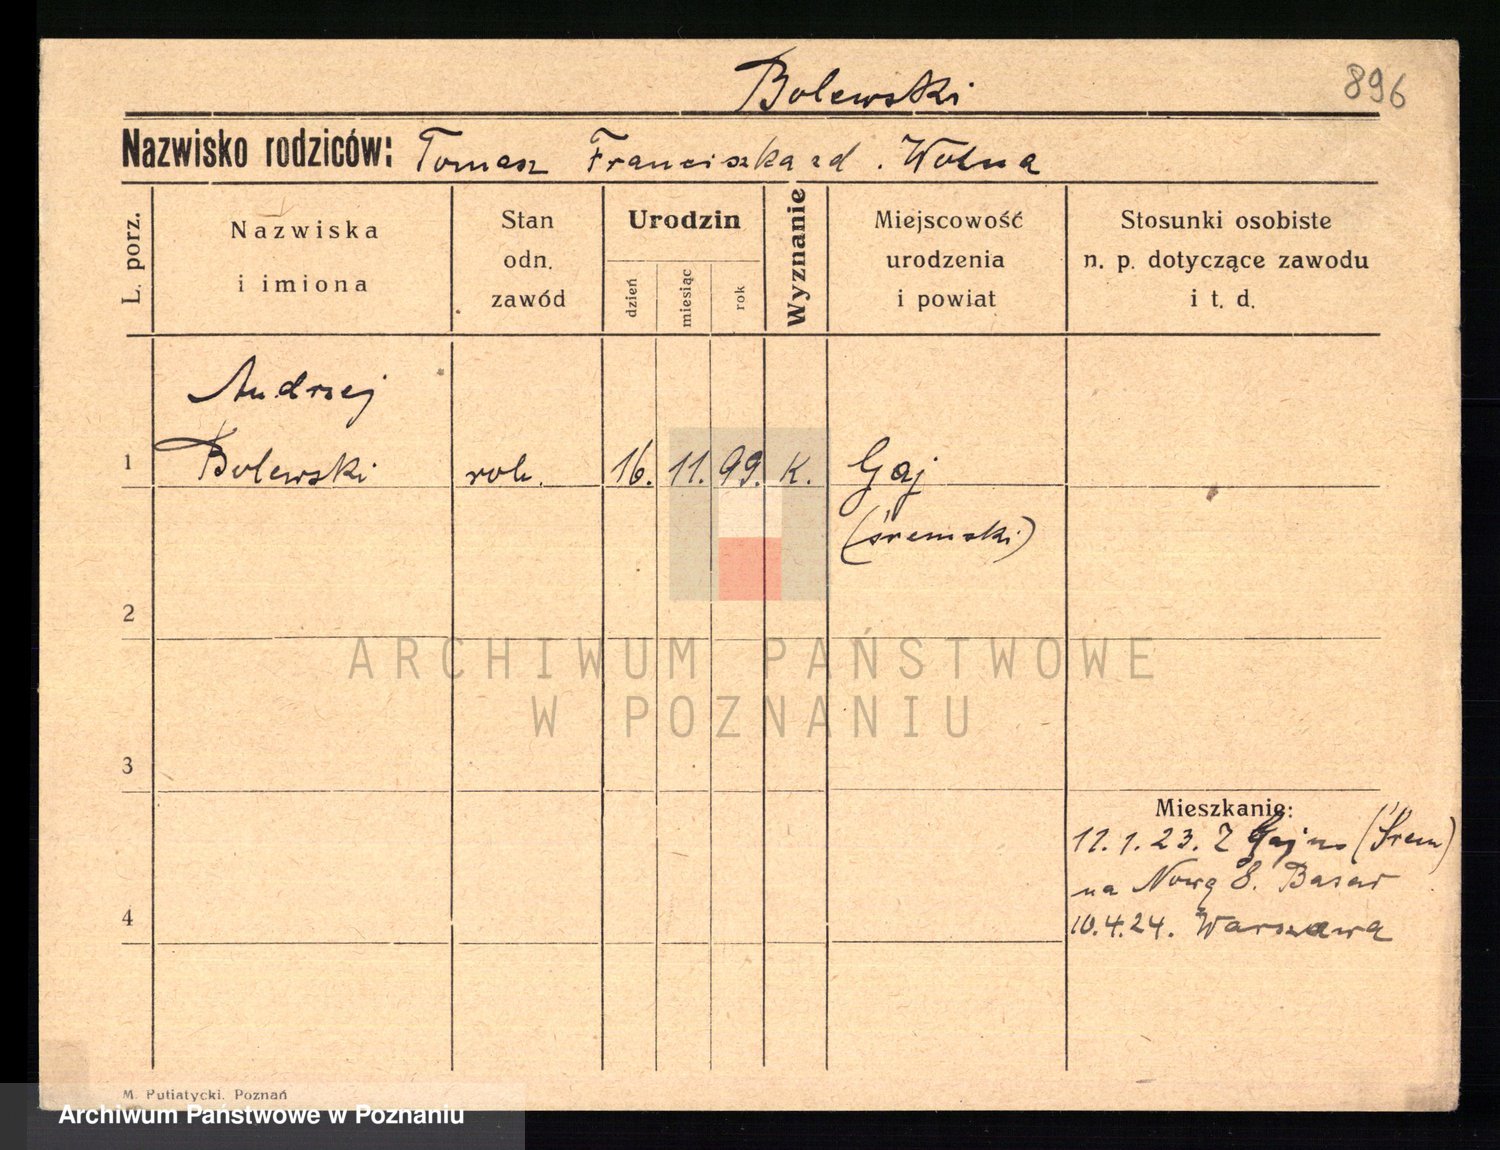 Bolewski
896
Nazwisko rodziców: Tomasz Franciszka zd. Woźna
L. porz.
Nazwiska
i imiona
Stan
odn.
zawód
Urodzin
dzień
miesiąc
rok
Wyznanie
Miejscowość
urodzenia
i powiat
Stosunki osobiste
n. p. dotyczące zawodu
i t. d.
Andrzej
1 Bolewski rob. 16. 11. 99. K. Gaj
(śremski)
2
ARCHIWUM PAŃSTWOWE
W POZNANIU
3
Mieszkanie:
11.1.23. Z (Śrem)
na Nową 8. Bazar
4
10.4.24. Warszawa
M. Putiatycki. Poznań
Archiwum Państwowe w Poznaniu